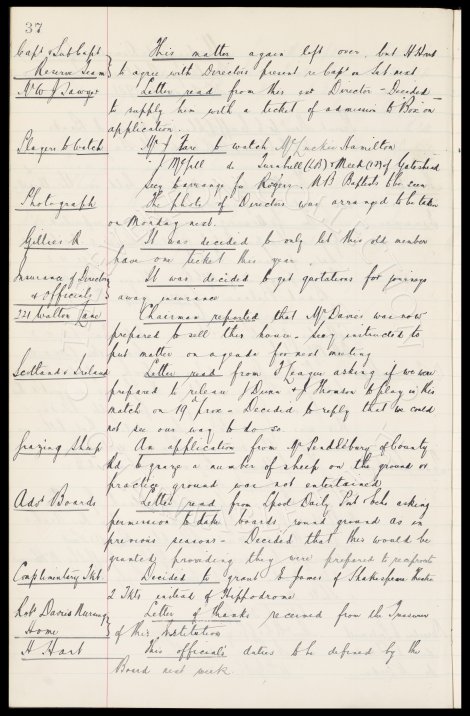 37
Capt & Sub Capt This matter again left over but H Hart
Reserve Team to agree with Directors present re Capt on Sat next
Mr W J Sawyer Letter read from this ex Director - Decided
to supply him with a ticket of admission to Box on
application.
Players to Watch Mr Fare to watch McLuckie Hamilton
J McGill do Turnbull (LB) & Meek (IR) of Gateshead
Secy to arrange for Rogers. N B Baptists to be seen
Photograph The photo of Directors was arranged to be taken
on Monday next.
Gillies R It was decided to only let this old member
have one ticket this year
Insurance of Directors It was decided to get quotations for journeys
& Officials away insurance
221 Walton Lane Chairman reported that Mr Davies was now
prepared to sell this house - Secy instructed to
put matter on agenda for next meeting
Scotland v Ireland Letter read from I League asking if we were
prepared to release J Dunn & J Thomson to play in this
match on 19th prox - Decided to reply that we could
not see our way to do so.
Grazing Sheep An application from Mr Pendlebury of County
Rd to graze a number of sheep on the ground or
practice ground was not entertained
Advt Boards Letter read from Lpool Daily Post & Echo asking
permission to date boards round ground as in
previous seasons - Decided that this would be
granted providing they were prepared to reciprocate
Complimentary Tkts. Decided to grant E James of Shakespeare theatre
2 Tkts instead of Hippodrome
Robt Davies Nursing Letter of thanks received from the Treasurer
Home of this Institution
H Hart This official's duties to be defined by the
Board next week.